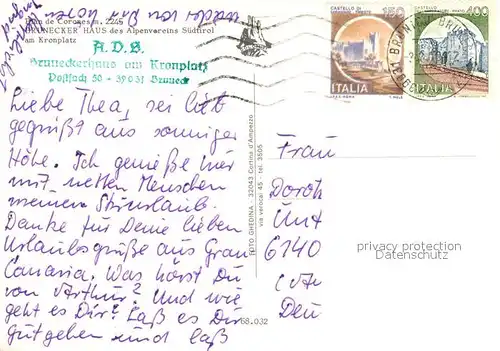 Plan de Corones m. 2245
BRUNECKER HAUS des Alpenvereins Südtirol
am Kronplatz
A.D.B.
Bruneckerhaus am Kronplatz
Postfach 50 - 39031 Bruneck
CASTELLO DI
150
400
ITALIA
ITALIA
Liebe Thea, sei lieb
gegrüßt aus sonniger
Höhe. Ich genieße hier
mit netten Menschen
meinen Skiurlaub.
Danke für Deine lieben
Urlaubsgrüße aus Gran
Canaria. Was hörst Du
von Arthur? Und wie
geht es Dir? Laß es Dir
gut gehen und laß
FOTO GHEDINA - 32043 Cortina d'Ampezzo
via verocai 45 - tel. 3505
68.032
Frau
Doroth
Unt
6140
Deu
privacy protection
Datenschutz